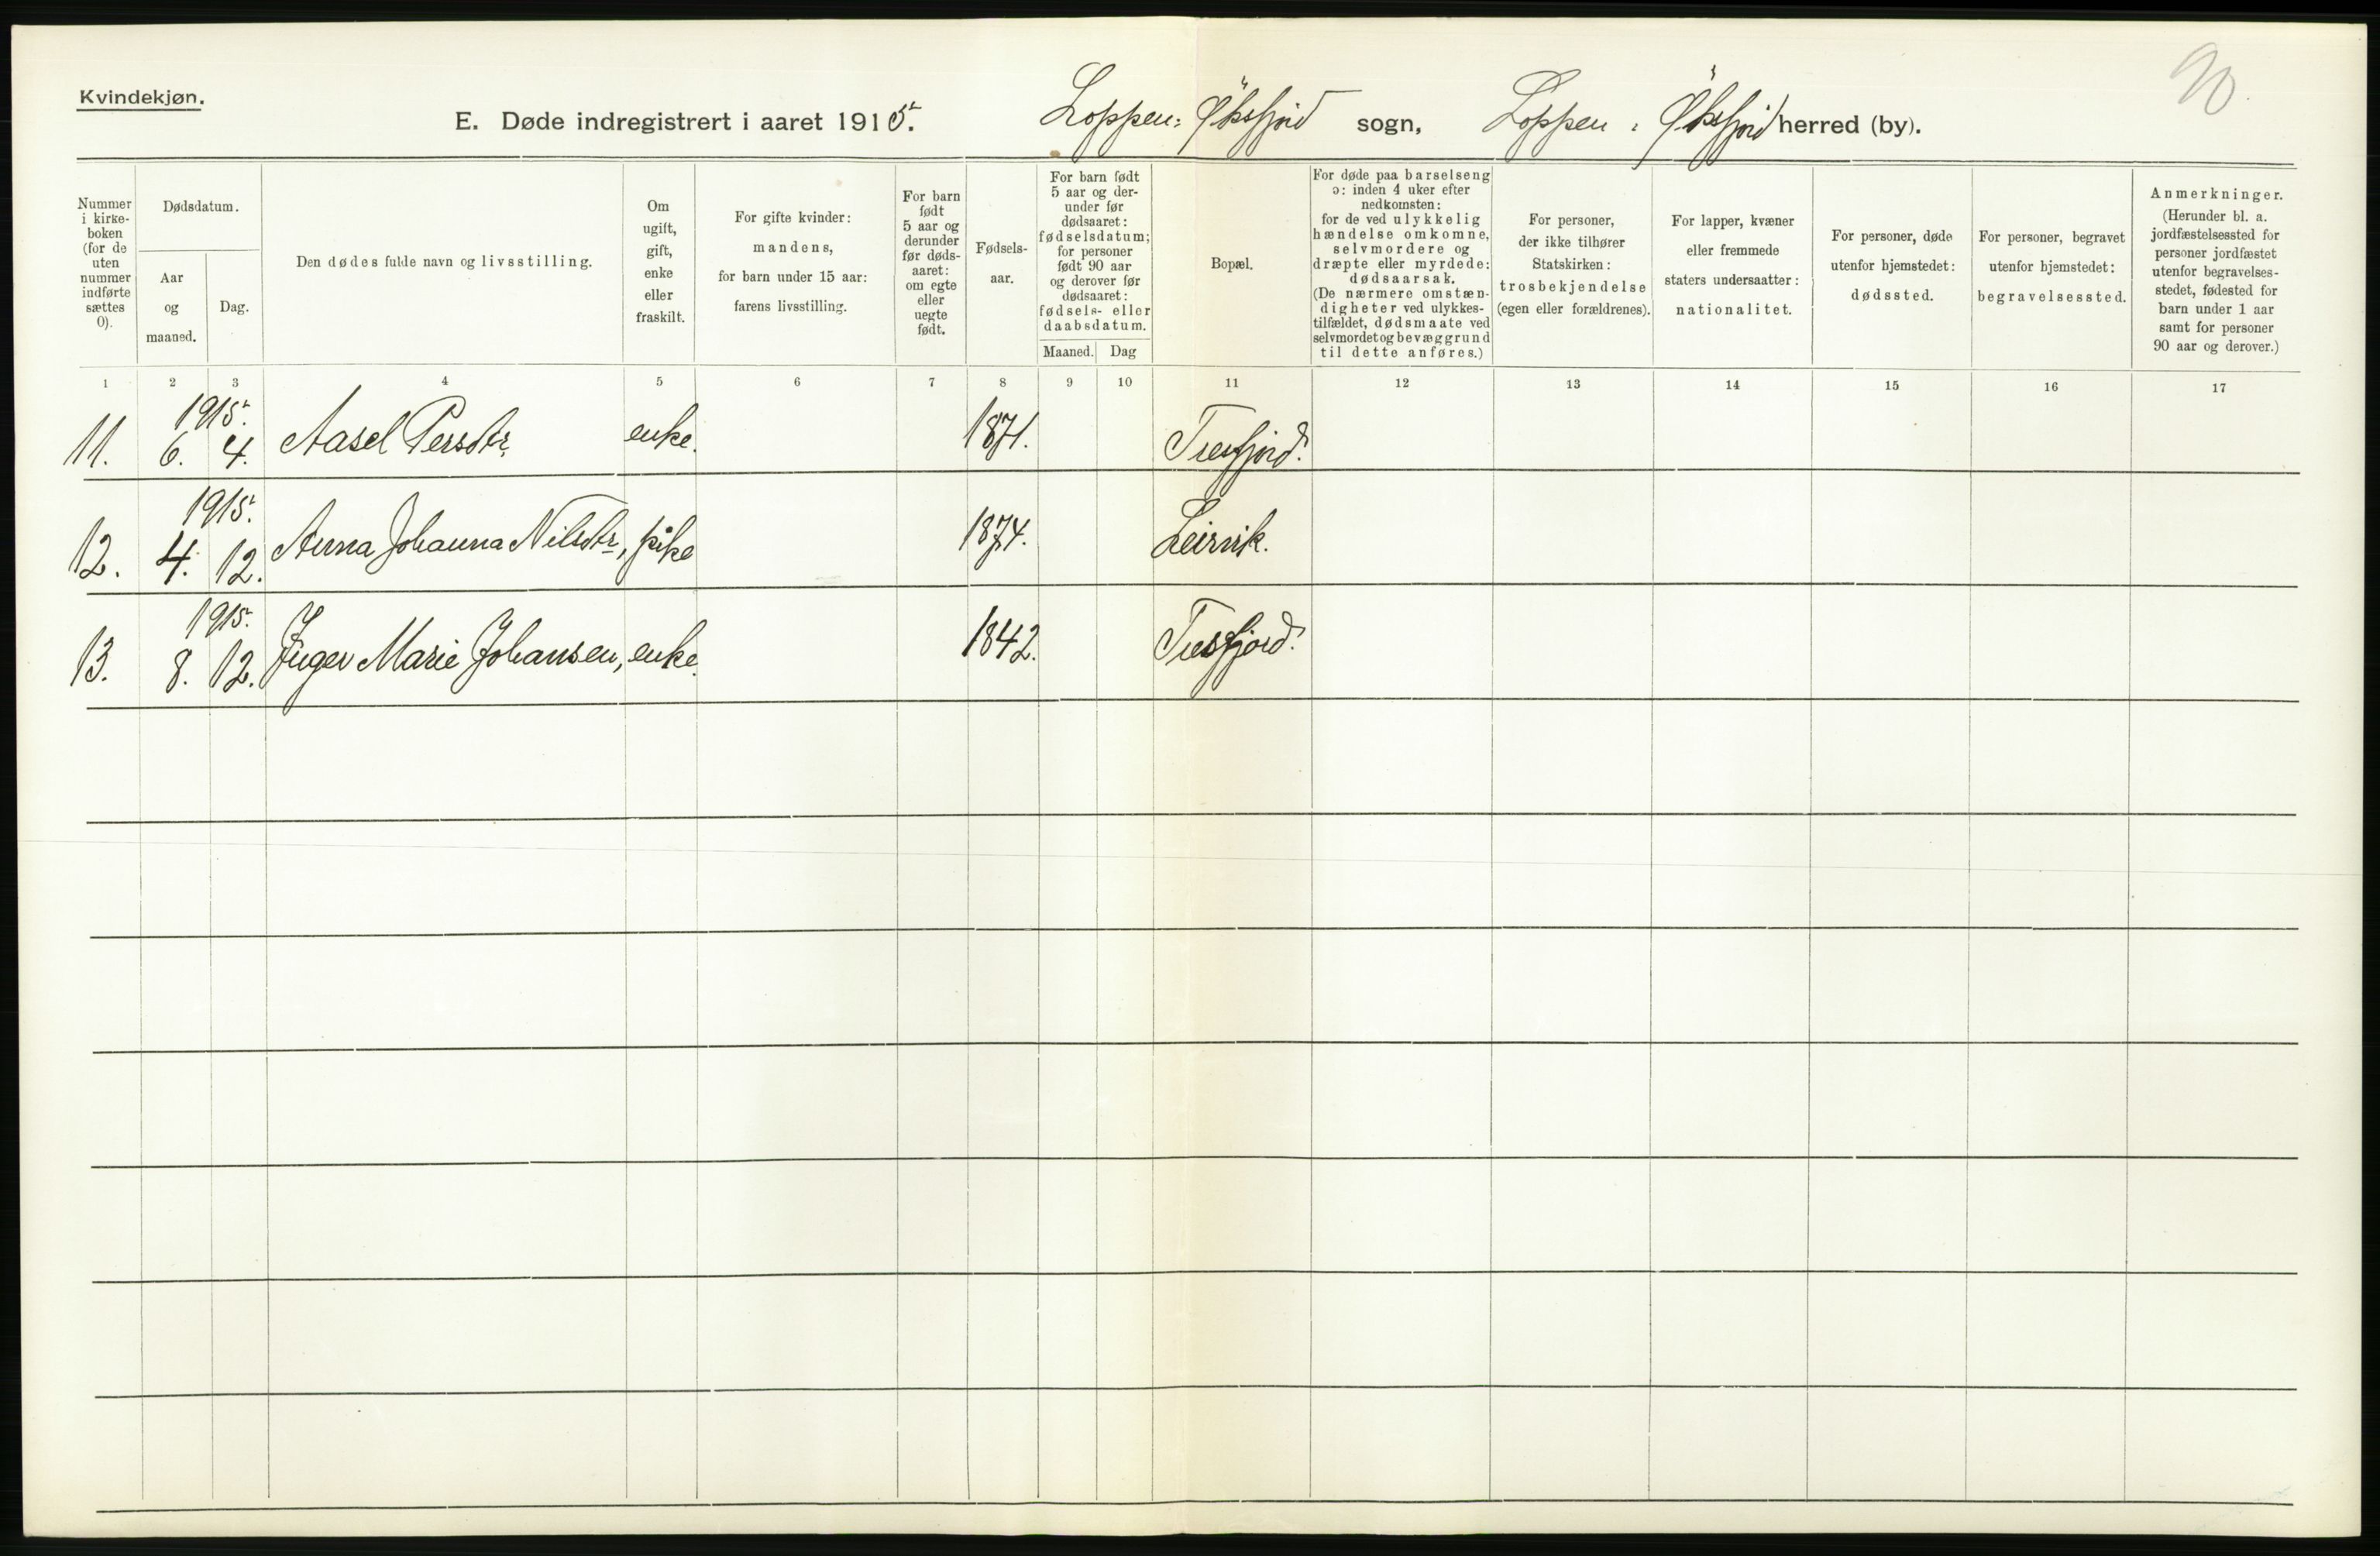 Kvindekjøn.
90.
E. Døde indregistrert i aaret 1915. Loppen: Øksfjord sogn, Loppen : Øksfjord herred (by).
Nummer
i kirke-
boken
(for de
uten
nummer
indførte
sættes
0).
Dødsdatum.
Aar
og
maaned.
Dag.
Den dødes fulde navn og livsstilling.
Om
ugift,
gift,
enke
eller
fraskilt.
For gifte kvinder:
mandens,
for barn under 15 aar:
farens livsstilling.
For barn
født
5 aar og
derunder
før døds-
aaret:
om egte
eller
uegte
født.
Fødsels-
aar.
For barn født
5 aar og der-
under før
dødsaaret:
fødselsdatum;
for personer
født 90 aar
og derover før
dødsaaret:
fødsels- eller
daabsdatum.
Maaned. Dag
Bopæl.
For døde paa barselseng
ɔ: inden 4 uker efter
nedkomsten:
for de ved ulykkelig
hændelse omkomne,
selvmordere og
dræpte eller myrdede:
dødsaarsak.
(De nærmere omstæn-
digheter ved ulykkes-
tilfældet, dødsmaate ved
selvmordet og bevæggrund
til dette anføres.)
For personer,
der ikke tilhører
Statskirken:
trosbekjendelse
(egen eller forældrenes).
For lapper, kvæner
eller fremmede
staters undersaatter:
nationalitet.
For personer, døde
utenfor hjemstedet:
dødssted.
For personer, begravet
utenfor hjemstedet:
begravelsessted.
Anmerkninger.
(Herunder bl. a.
jordfæstelsessted for
personer jordfæstet
utenfor begravelses-
stedet, fødested for
barn under 1 aar
samt for personer
90 aar og derover.)
1 2 3 4 5 6 7 8 9 10 11 12 13 14 15 16 17
1915.
11. 6. 4. Aasel Persdtr, enke. 1871. Tresfjord.
1915.
12. 4. 12. Anna Johanna Nilsdtr, pike 1874. Leirvik.
1915.
13. 8. 12. Inger Marie Johansen, enke. 1842. Tresfjord.